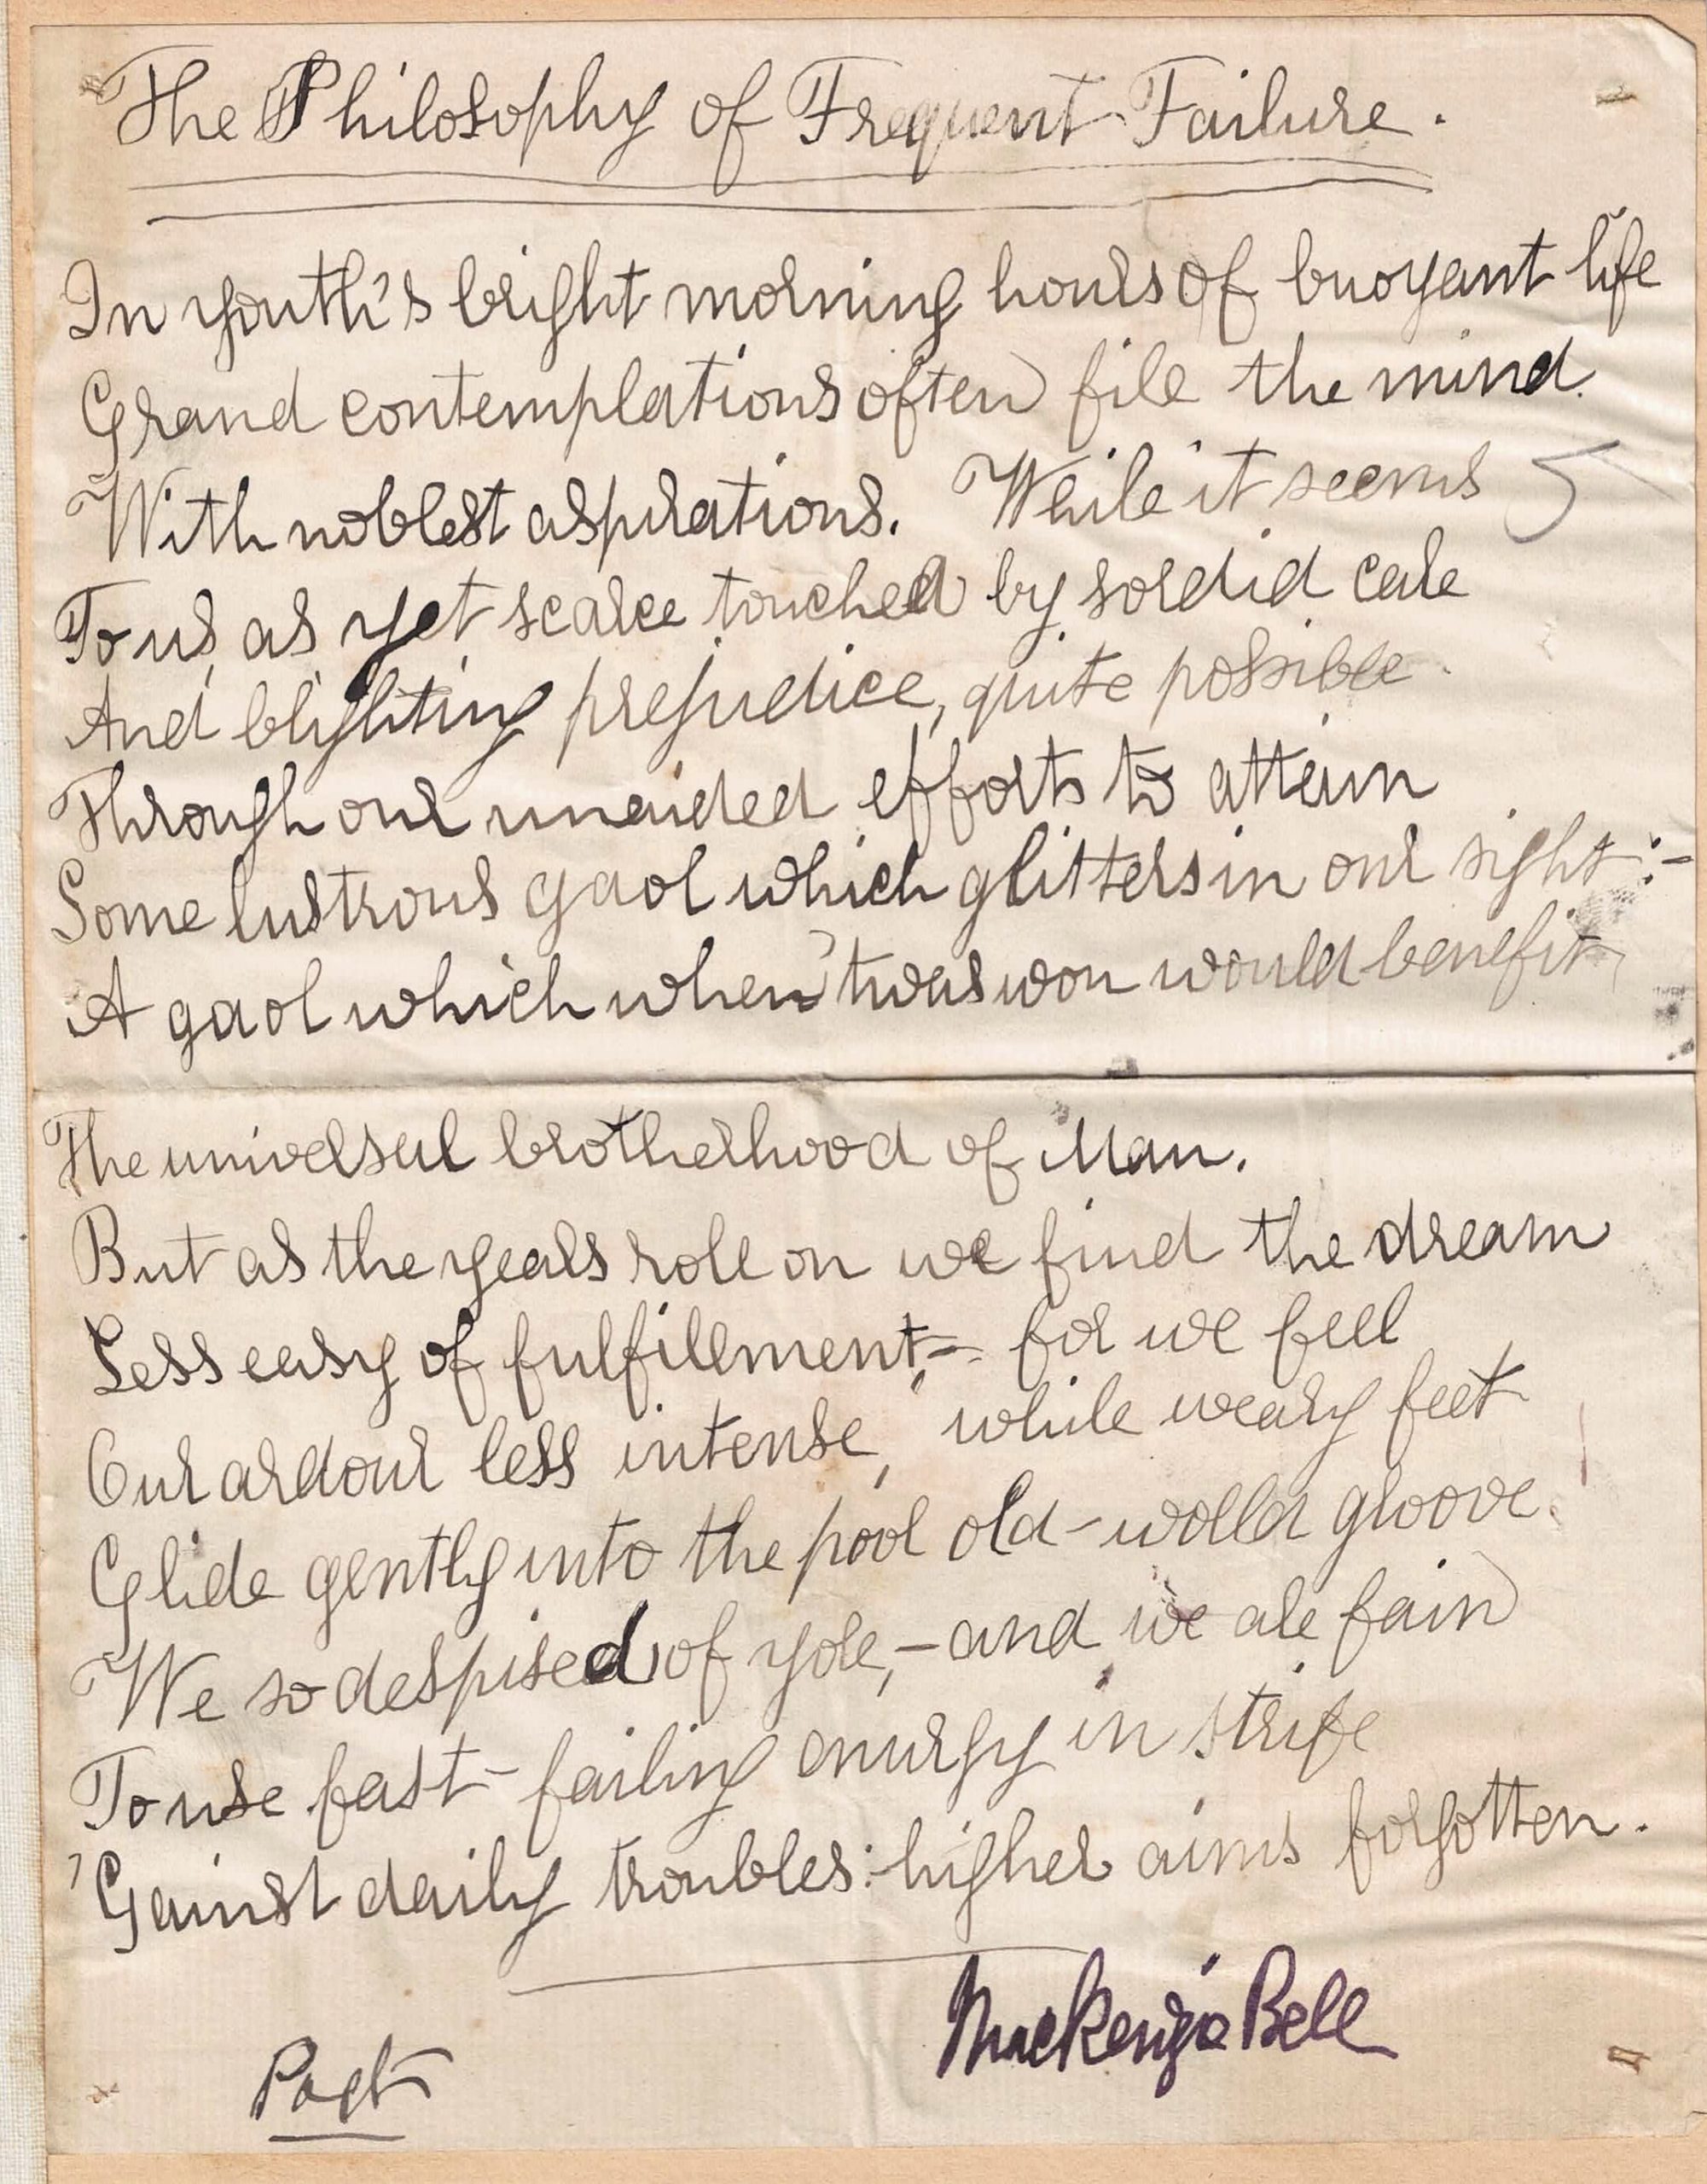 The Philosophy of Frequent Failure.
In youth's bright morning hours of buoyant life
Grand contemplations often fill the mind
With noblest aspirations. While it seems
To us, as yet scarce touched by sordid care
And blighting prejudice, quite possible
Through our unaided efforts to attain
Some lustrous gaol which glitters in our sight:-
A gaol which when 'twas won would benefit
The universal brotherhood of Man.
But as the years roll on we find the dream
Less easy of fulfillment,- for we feel
Our ardour less intense, while weary feet
Glide gently into the poor old-world groove
We so despised of yore,- and we are fain
To use fast-failing energy in strife
'Gainst daily troubles: higher aims forgotten.
Mackenzie Bell
Poet